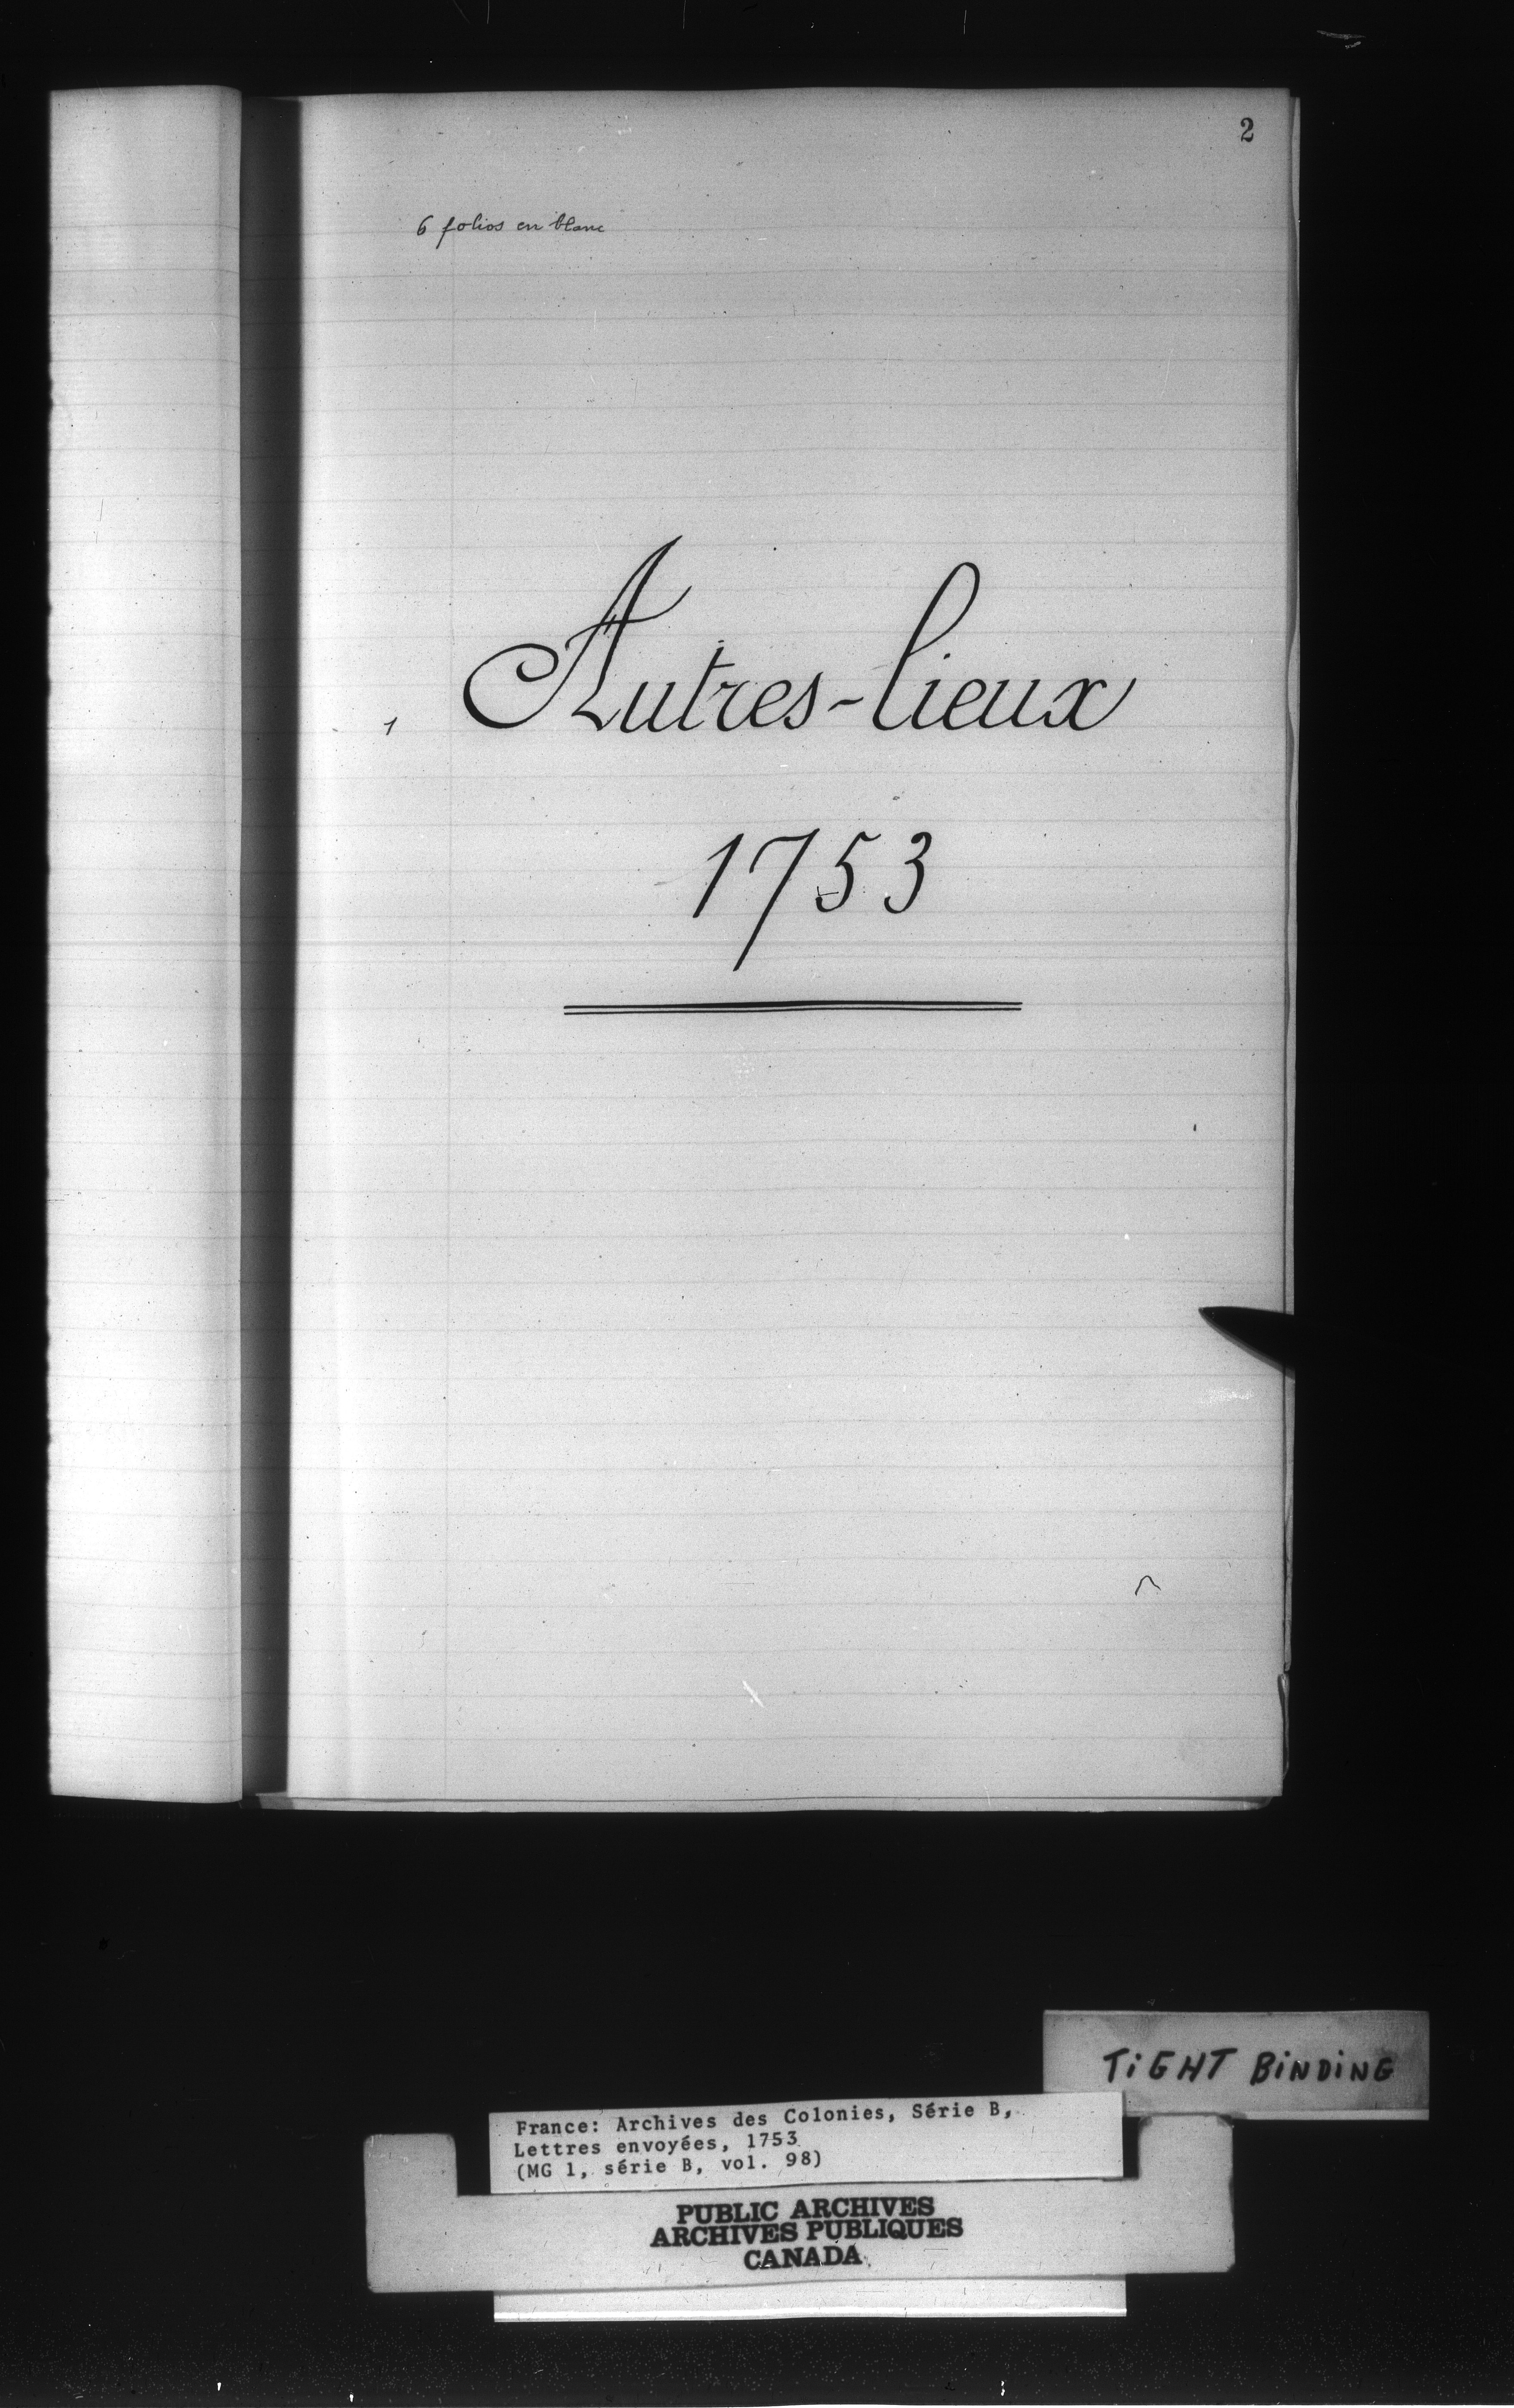 2
6 folios en blanc
Autres-lieux
1753
TiGHT BiNDiNG
France: Archives des Colonies, Série B,
Lettres envoyées, 1753
(MG 1, série B, vol. 98)
PUBLIC ARCHIVES
ARCHIVES PUBLIQUES
CANADA